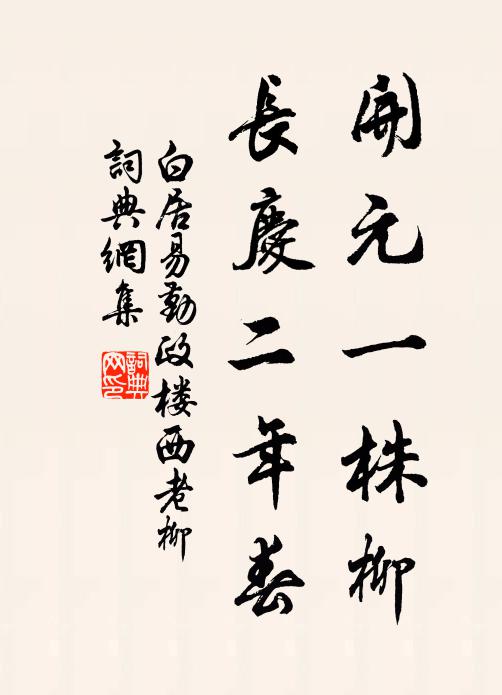 開元一株柳
長慶二年春
白居易勤政楼西老柳
詞典網集
詞典网印